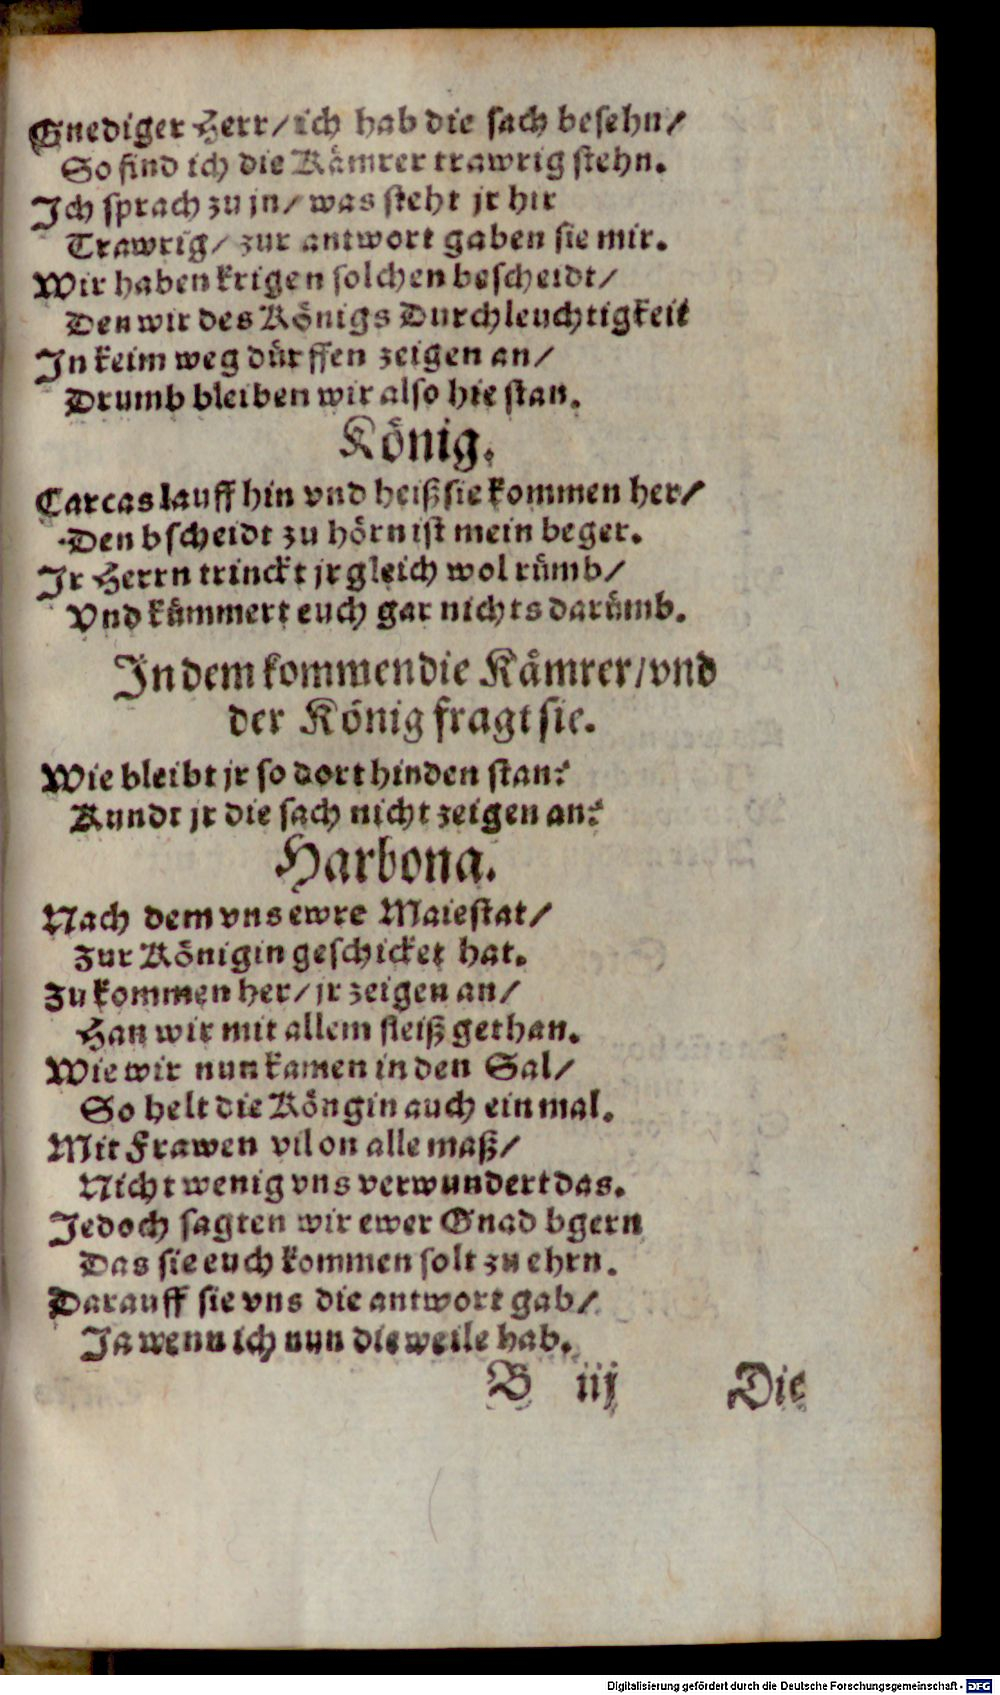 Gnediger Herr/ ich hab die sach besehn/
So find ich die Kämrer trawrig stehn.
Ich sprach zu jn/ was steht jr hir
Trawrig/ zur antwort gaben sie mir.
Wir haben krigen solchen bescheidt/
Den wir des Königs Durchleuchtigkeit
In keim weg dürffen zeigen an/
Drumb bleiben wir also hie stan.
König.
Carcas lauff hin vnd heiß sie kommen her/
Den bscheidt zu hörn ist mein beger.
Jr Herrn trinckt jr gleich wol rümb/
Vnd kümmert euch gar nichts darümb.
In dem kommen die Kämrer/ vnd
der König fragt sie.
Wie bleibt jr so dort hinden stan?
Kundt jr die sach nicht zeigen an?
Harbona.
Nach dem vns ewre Maiestat/
Zur Königin geschicket hat.
Zu kommen her/ jr zeigen an/
Han wir mit allem fleiß gethan.
Wie wir nun kamen in den Sal/
So helt die Köngin auch ein mal.
Mit Frawen vil on alle maß/
Nicht wenig vns verwundert das.
Jedoch sagten wir ewer Gnad bgern
Das sie euch kommen solt zu ehrn.
Darauff sie vns die antwort gab/
Ja wenn ich nun die weile hab.
B iij Die
Digitalisierung gefördert durch die Deutsche Forschungsgemeinschaft - DFG